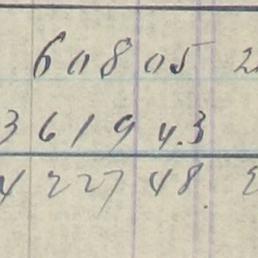 608 05 2
3 619 43
4 227 48 2